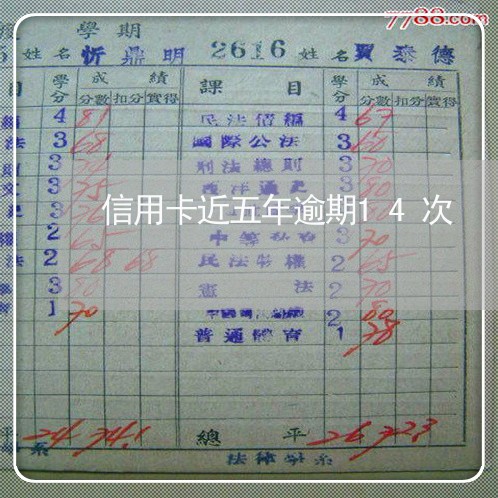 7788.com
學期
姓名 忻鼎明 2616 姓名 賈泰德
目 學分 成績 課目 學分 成績
分數 扣分 實得 分數 扣分 實得
4 81 民法債編 4 67
法 3 68 國際公法 3 60
3 刑法總則 3 70
3 75 西洋通史 3 80
信用卡近五年逾期14次
2 65 3 70
法 2 68 68 民法物權 2 65
3 80 憲法 2 70
1 70 2 80
普通體育 1 78
平 24 74.1 總平 26 72.3
法律學系